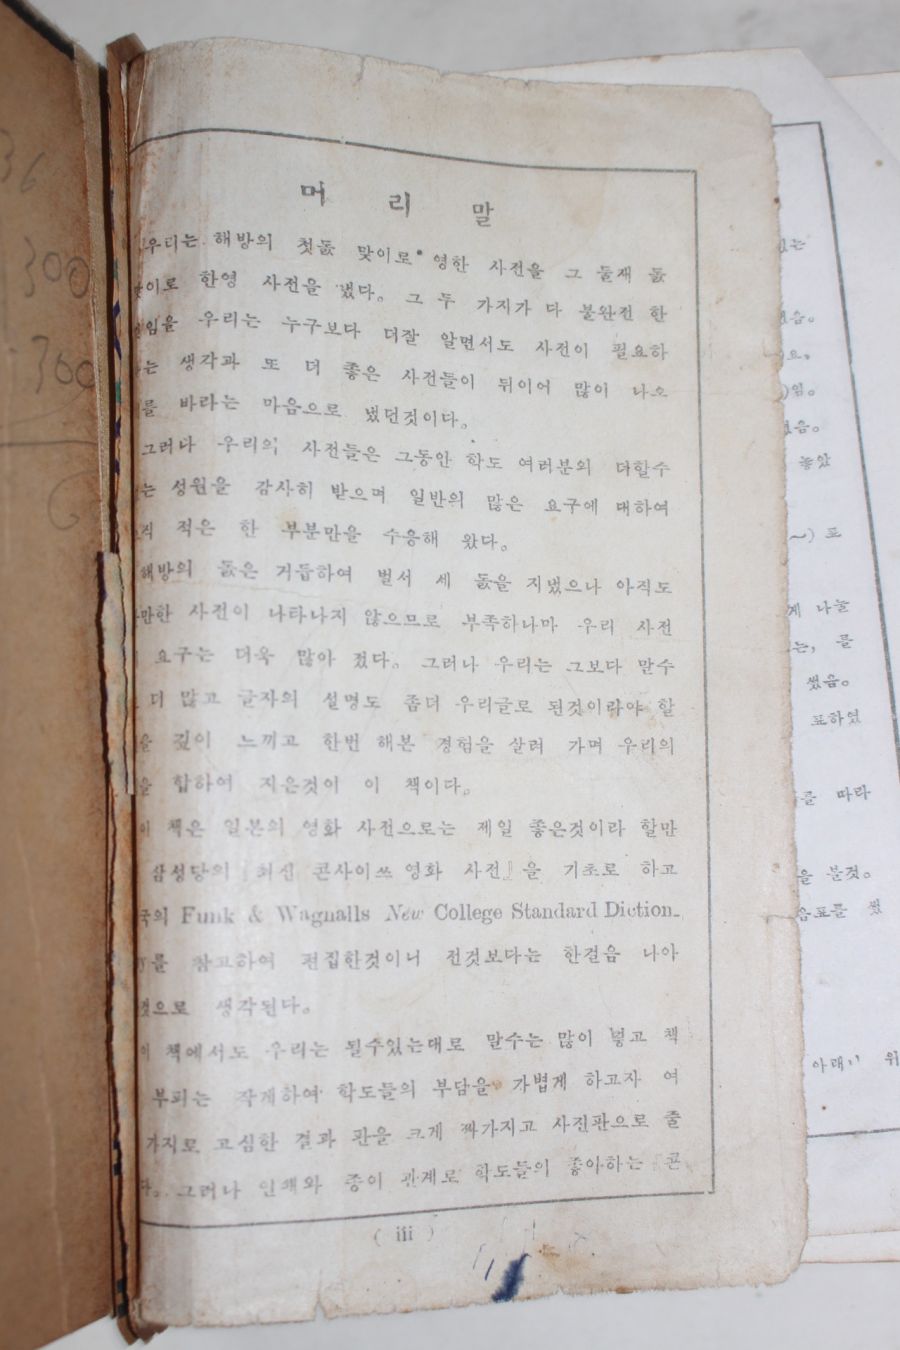 36
300
360
머 리 말
우리는 해방의 첫돐 맞이로 영한 사전을 그 둘재 돐
맞이로 한영 사전을 냈다。 그 두 가지가 다 불완전 한
임을 우리는 누구보다 더잘 알면서도 사전이 필요하
는 생각과 또 더 좋은 사전들이 뒤이어 많이 나오
를 바라는 마음으로 냈던것이다。
그러나 우리의 사전들은 그동안 학도 여러분의 다할수
는 성원을 감사히 받으며 일반의 많은 요구에 대하여
적은 한 부분만을 수응해 왔다。
해방의 돐은 거듭하여 벌서 세 돐을 지냈으나 아직도
만한 사전이 나타나지 않으므로 부족하나마 우리 사전
요구는 더욱 많아 졌다。 그러나 우리는 그보다 말수
더 많고 글자의 설명도 좀더 우리글로 된것이라야 할
을 깊이 느끼고 한번 해본 경험을 살려 가며 우리의
을 합하여 지은것이 이 책이다。
이 책은 일본의 영화 사전으로는 제일 좋은것이라 할만
삼성당의 『최신 콘사이쓰 영화 사전』을 기초로 하고
국의 Funk & Wagnalls New College Standard Diction-
를 참고하여 편집한것이니 전것보다는 한걸음 나아
것으로 생각된다。
이 책에서도 우리는 될수있는대로 말수는 많이 넣고 책
부피는 작게하여 학도들의 부담을 가볍게 하고자 여
가지로 고심한 결과 판을 크게 짜가지고 사진판으로 줄
다。 그러나 인쇄와 종이 관계로 학도들의 좋아하는 『콘
( iii )
는
음。
요,
)임。
음。
놓았
~) 표
게 나눌
는, 를
썼음。
표하였
를 따라
을 붙것。
음표를 썼
아래 위